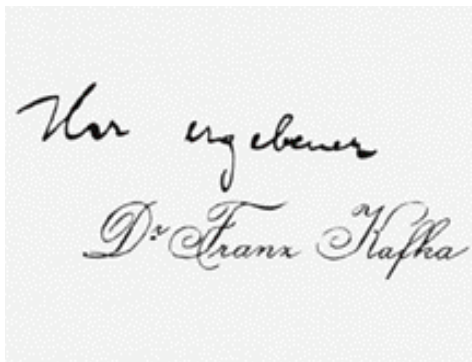 Ihr ergebener
Dr Franz Kafka